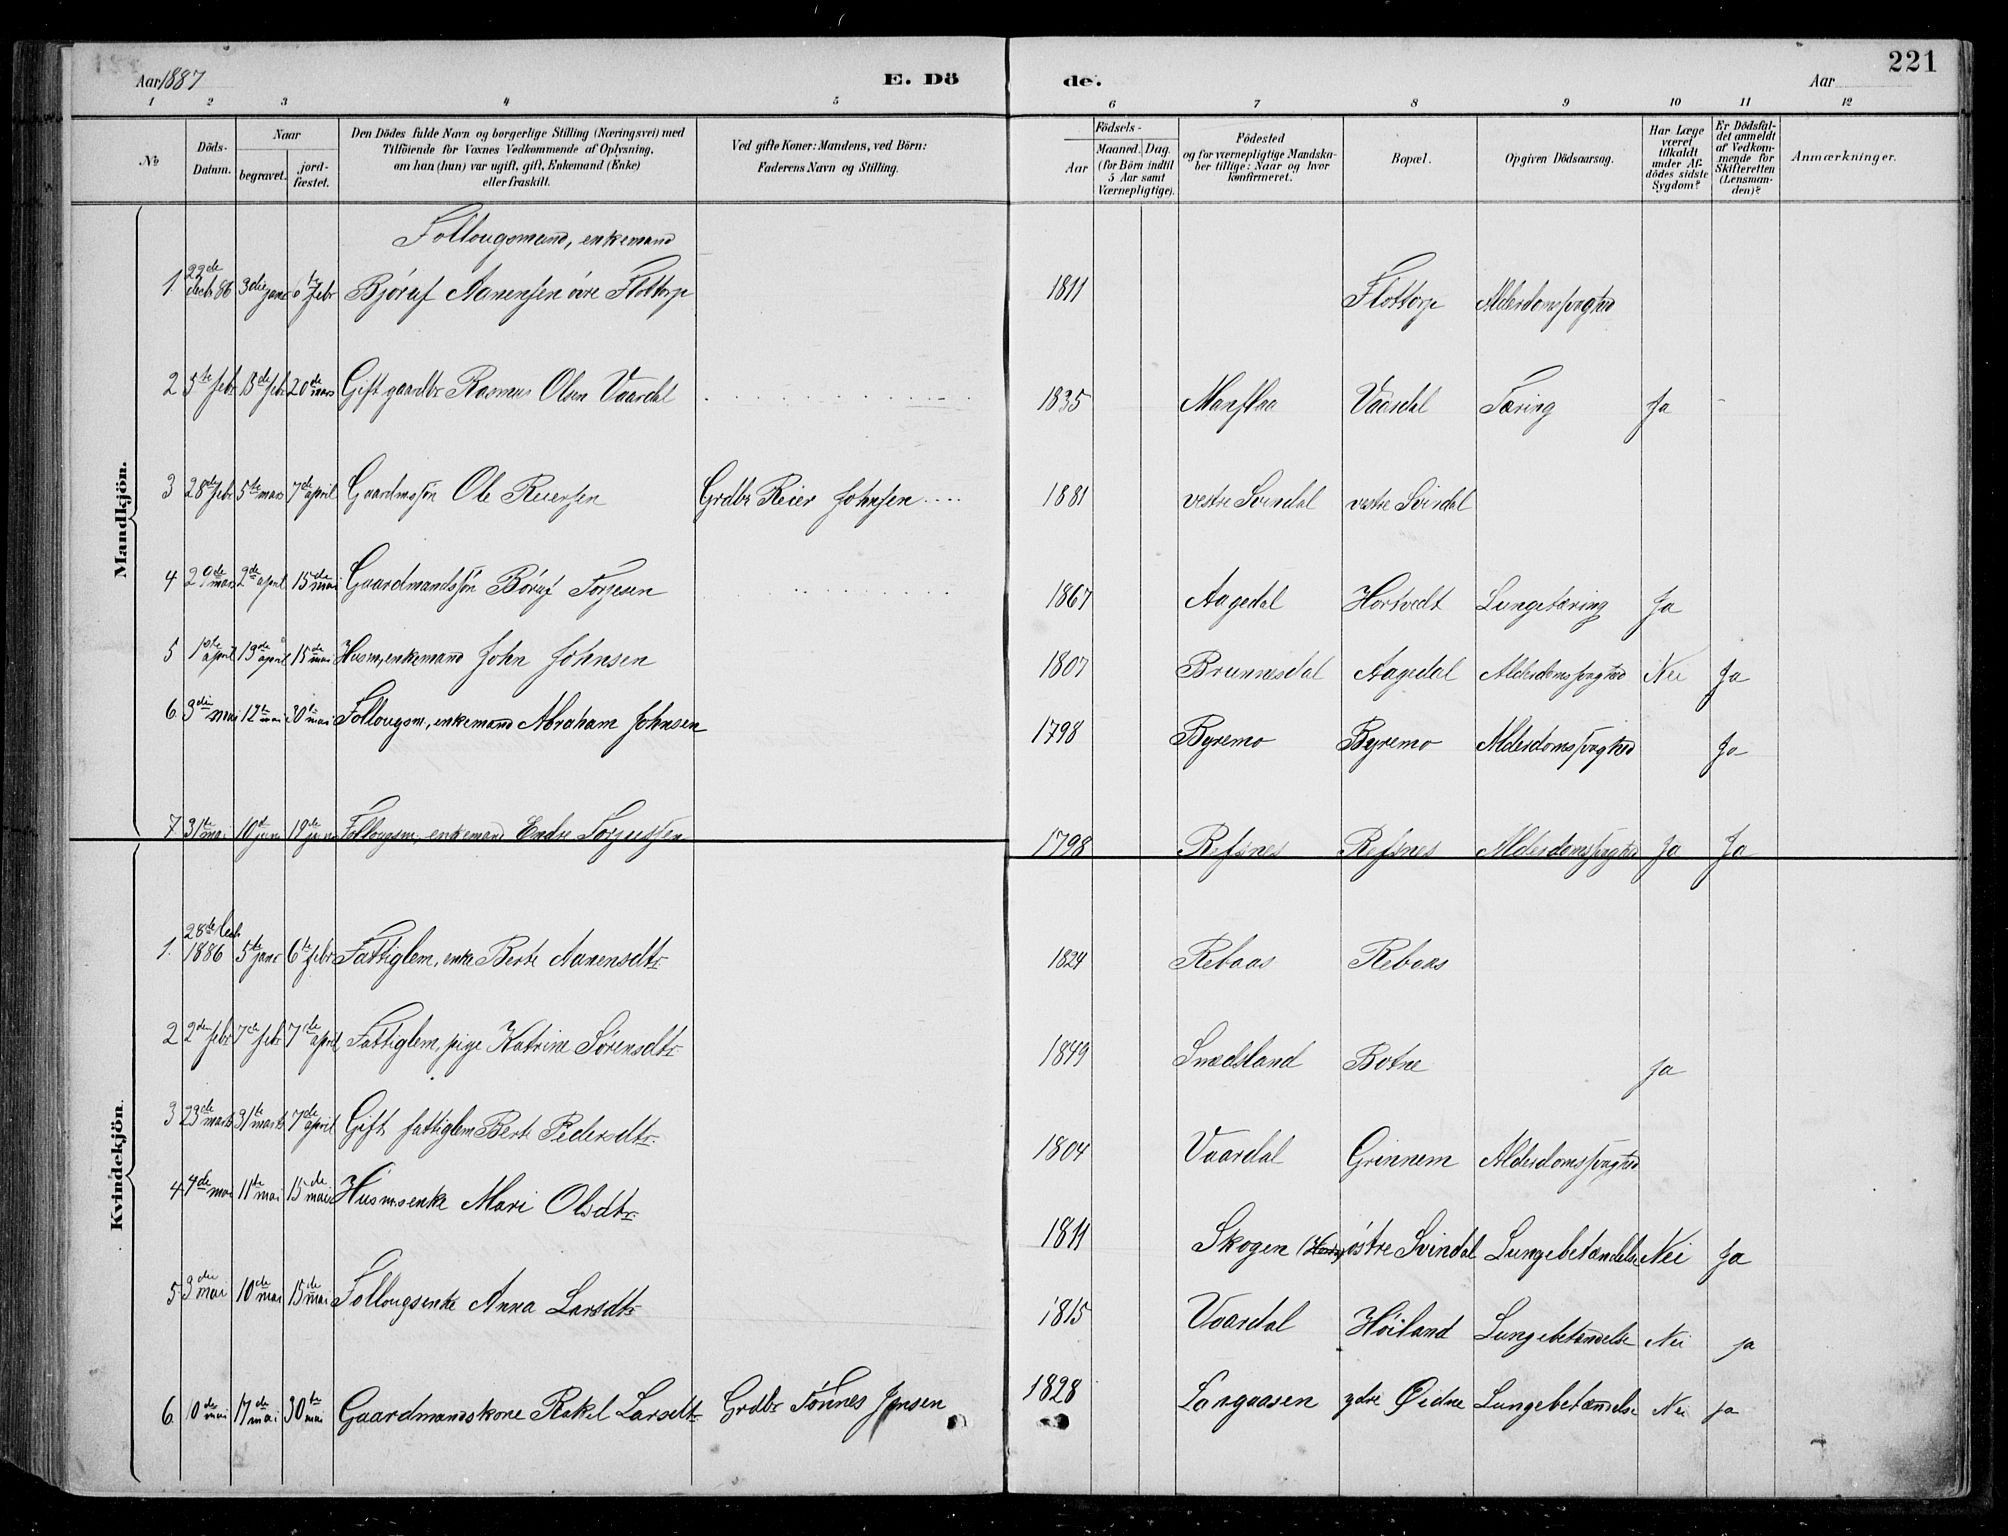 Aar 1887
E. Dö
de.
Aar
221
1 2 3 4 5 6 7 8 9 10 11 12
No
Döds-Datum.
Naar
begravet.
jord-fæstet.
Den Dödes fulde Navn og borgerlige Stilling (Næringsvei) med
Tilföiende for Voxnes Vedkommende af Oplysning,
om han (hun) var ugift, gift, Enkemand (Enke)
eller fraskilt.
Ved gifte Koner: Mandens, ved Börn:
Faderens Navn og Stilling.
Födsels-
Aar
Maaned. Dag.
(for Börn indtil
5 Aar samt
Værnepligtige).
Födested
og for værnepligtige Mandska-
ber tillige: Naar og hvor
konfirmeret.
Bopæl.
Opgiven Dödsaarsag.
Har Læge
været
tilkaldt
under Af-
dödes sidste
Sygdom?
Er Dödsfal-
det anmeldt
af Vedkom-
mende for
Skifteretten
(Lensman-
den)?
Anmærkninger.
Mandkjön.
Follougsmand, enkemand
1. 22de decbr 86 3die janr 6te febr Björuf Aanensen övre Flottorp 1811 Flottorp Alderdomssvaghed
2 5te febr 13de febr 20de mars Gift gaardbr Rasmus Olsen Vaardal 1835 Manflaa Vaardal Tæring Ja -
3 28de febr 5te mars 7de april Gaardmssön Ole Reiersen Grdbr Reier Johnsen 1881 vestre Svindal vestre Svindal
4 29de mars 2de april 15de mai Gaardmandssön Böruf Torjesen 1867 Aagedal Hortvedt Lungetæring Ja
5 1ste april 13de april 15de mai Husm, enkemand John Johnsen 1807 Brunnesdal Aagedal Alderdomssvaghed Nei Ja
6 3die mai 12te mai 30te mai Follougsm, enkemand Abraham Johnsen 1798 Byremo Byremo Alderdomssvaghed Ja
7 31te mai 10de juni 19de juni Follougsm, enkemand Endre Torjussen 1798 Refsnes Refsnes Alderdomssvaghed Ja Ja
Kvindekjön.
1. 28de decbr 1886 5te janr 6te febr Fattiglem, enke Berte Aanensdtr 1824 Rebaas Rebaas
2 2den febr 7de febr 7de april Fattiglem, pige Katrine Sörensdtr 1849 Smedsland Botne Ja
3 23de marts 31te marts 7de april Gift fattiglem Berte Pedersdtr. 1804 Vaardal Grinnem Alderdomssvaghed
4 4de mai 11de mai 15de mai Husmsenke Mari Olsdtr. 1811 Skogen östre Svindal Lungebetændelse Nei Ja
5 3die mai 10de mai 15de mai Follougsenke Anna Larsdtr 1815 Vaardal Höiland Lungebetændelse Nei ja
6 10de mai 17de mai 30te mai Gaardmandskone Rakel Larsdtr Grdbr Tönnes Jensen 1828 Largaasen ydre Øidne Lungebetændelse Nei ja